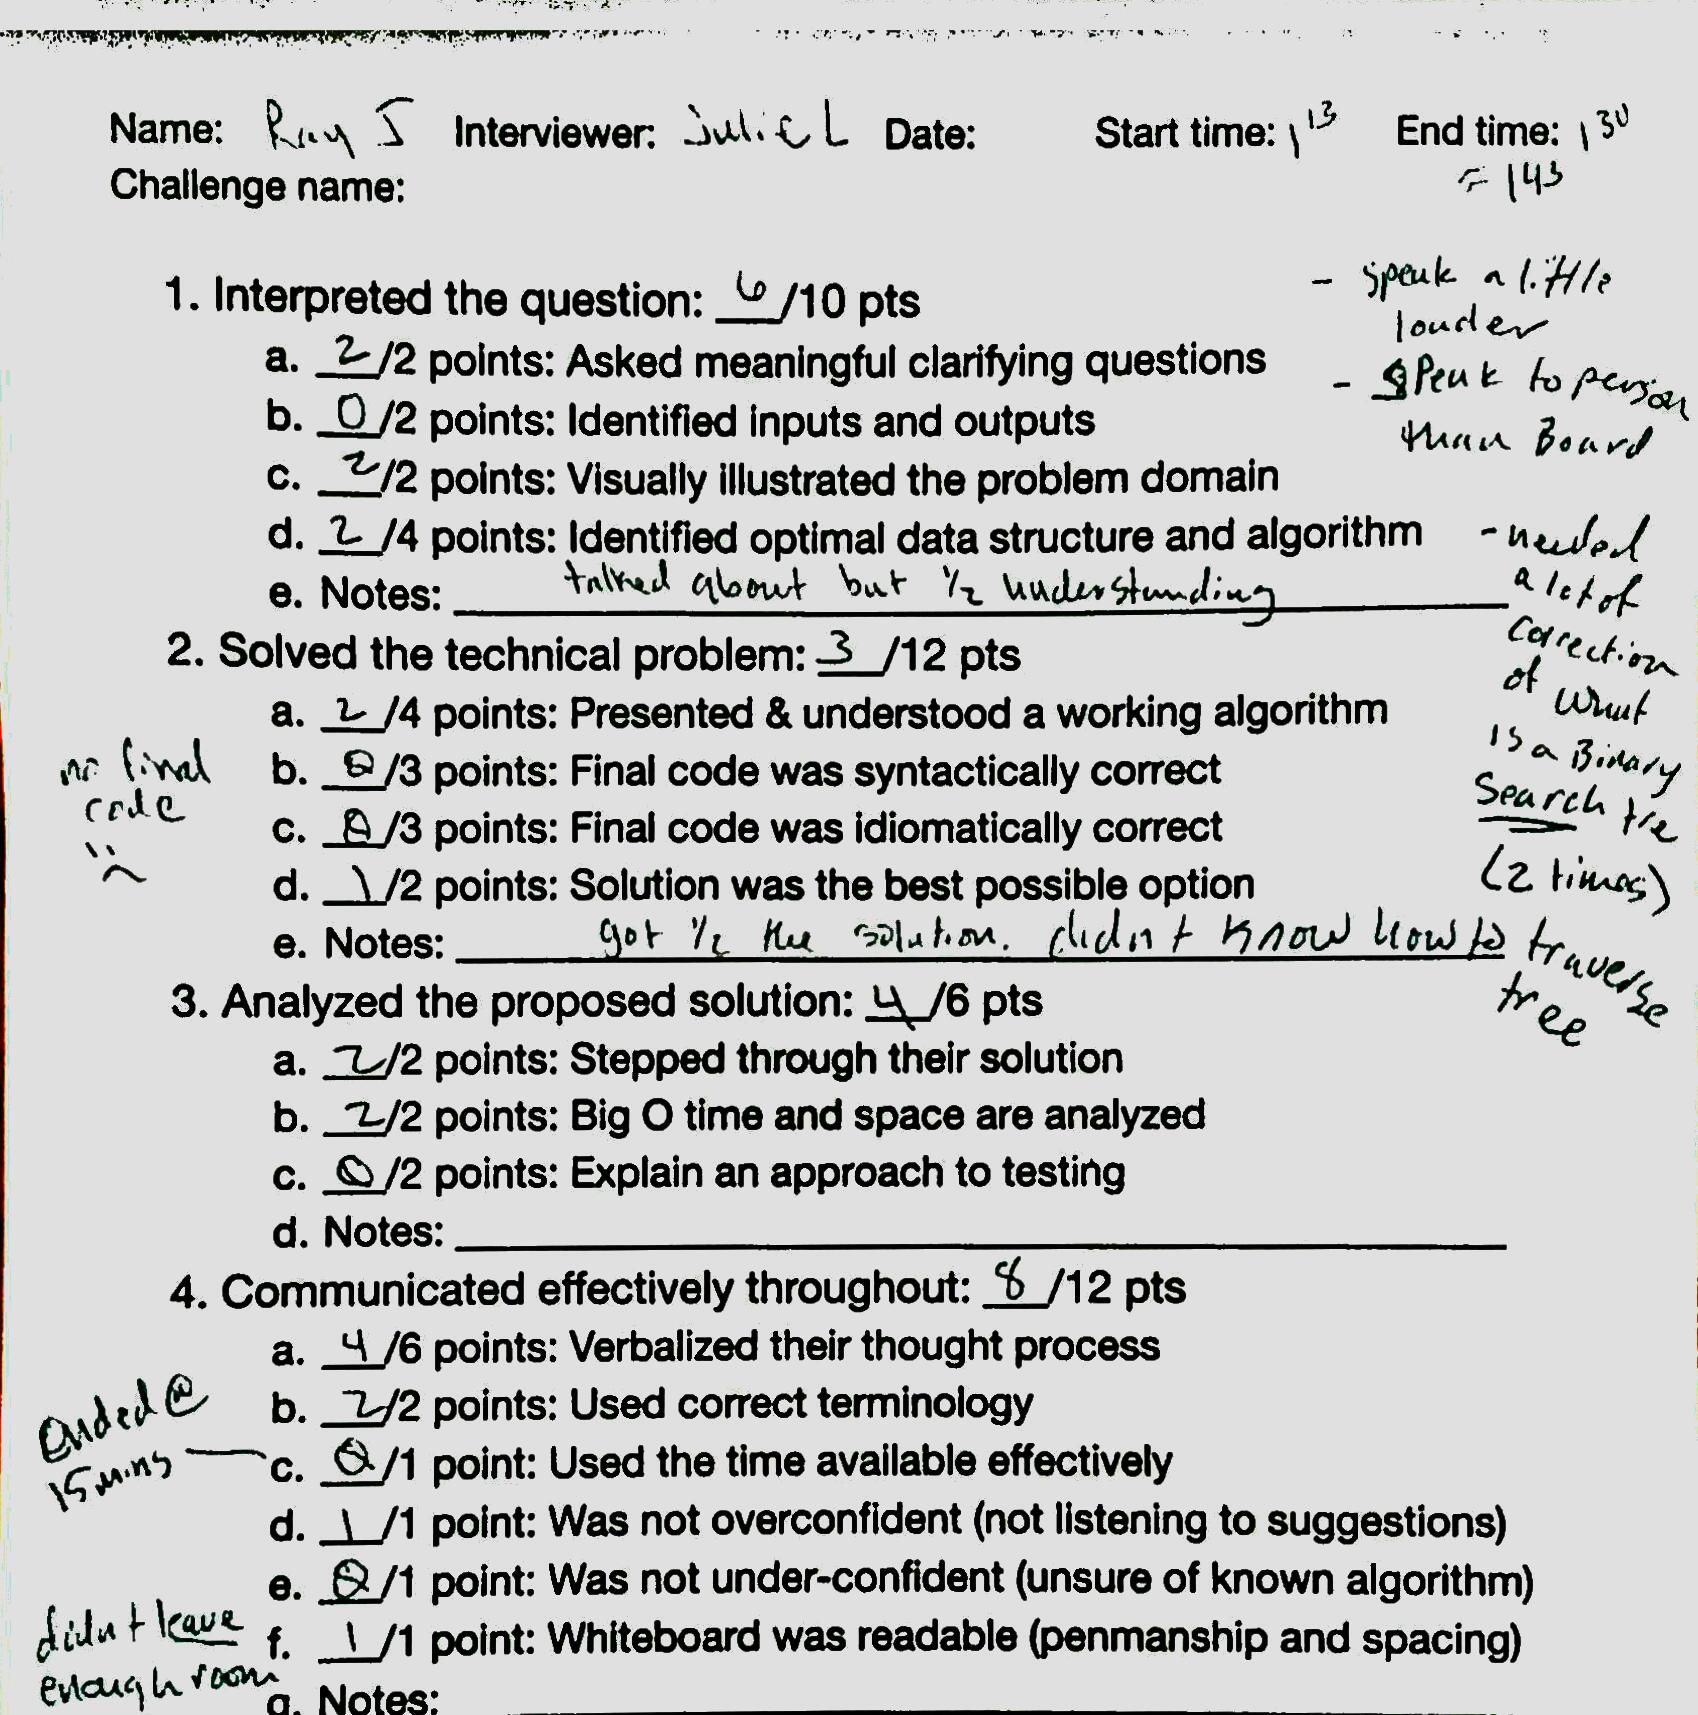 Name: Ray J Interviewer: Julie L Date: Start time: 1 13 End time: 1 30
Challenge name: = 143
1. Interpreted the question: 6/10 pts
- speak a little
louder
a. 2/2 points: Asked meaningful clarifying questions
- Speak to person
than Board
b. 0/2 points: Identified inputs and outputs
c. 2/2 points: Visually illustrated the problem domain
d. 2/4 points: Identified optimal data structure and algorithm
e. Notes: talked about but 1/2 understanding
- needed
a lot of
correction
of what
is a Binary
Search tre
(2 times)
2. Solved the technical problem: 3/12 pts
a. 2/4 points: Presented & understood a working algorithm
no final
code
b. 0/3 points: Final code was syntactically correct
c. 0/3 points: Final code was idiomatically correct
d. 1/2 points: Solution was the best possible option
e. Notes: got 1/2 the solution. didn't know how to traverse
tree
3. Analyzed the proposed solution: 4/6 pts
a. 2/2 points: Stepped through their solution
b. 2/2 points: Big O time and space are analyzed
c. 0/2 points: Explain an approach to testing
d. Notes:
4. Communicated effectively throughout: 8/12 pts
a. 4/6 points: Verbalized their thought process
b. 2/2 points: Used correct terminology
Ended @
15 mins
c. 0/1 point: Used the time available effectively
d. 1/1 point: Was not overconfident (not listening to suggestions)
e. 0/1 point: Was not under-confident (unsure of known algorithm)
didn't leave
enough room
f. 1/1 point: Whiteboard was readable (penmanship and spacing)
g. Notes: